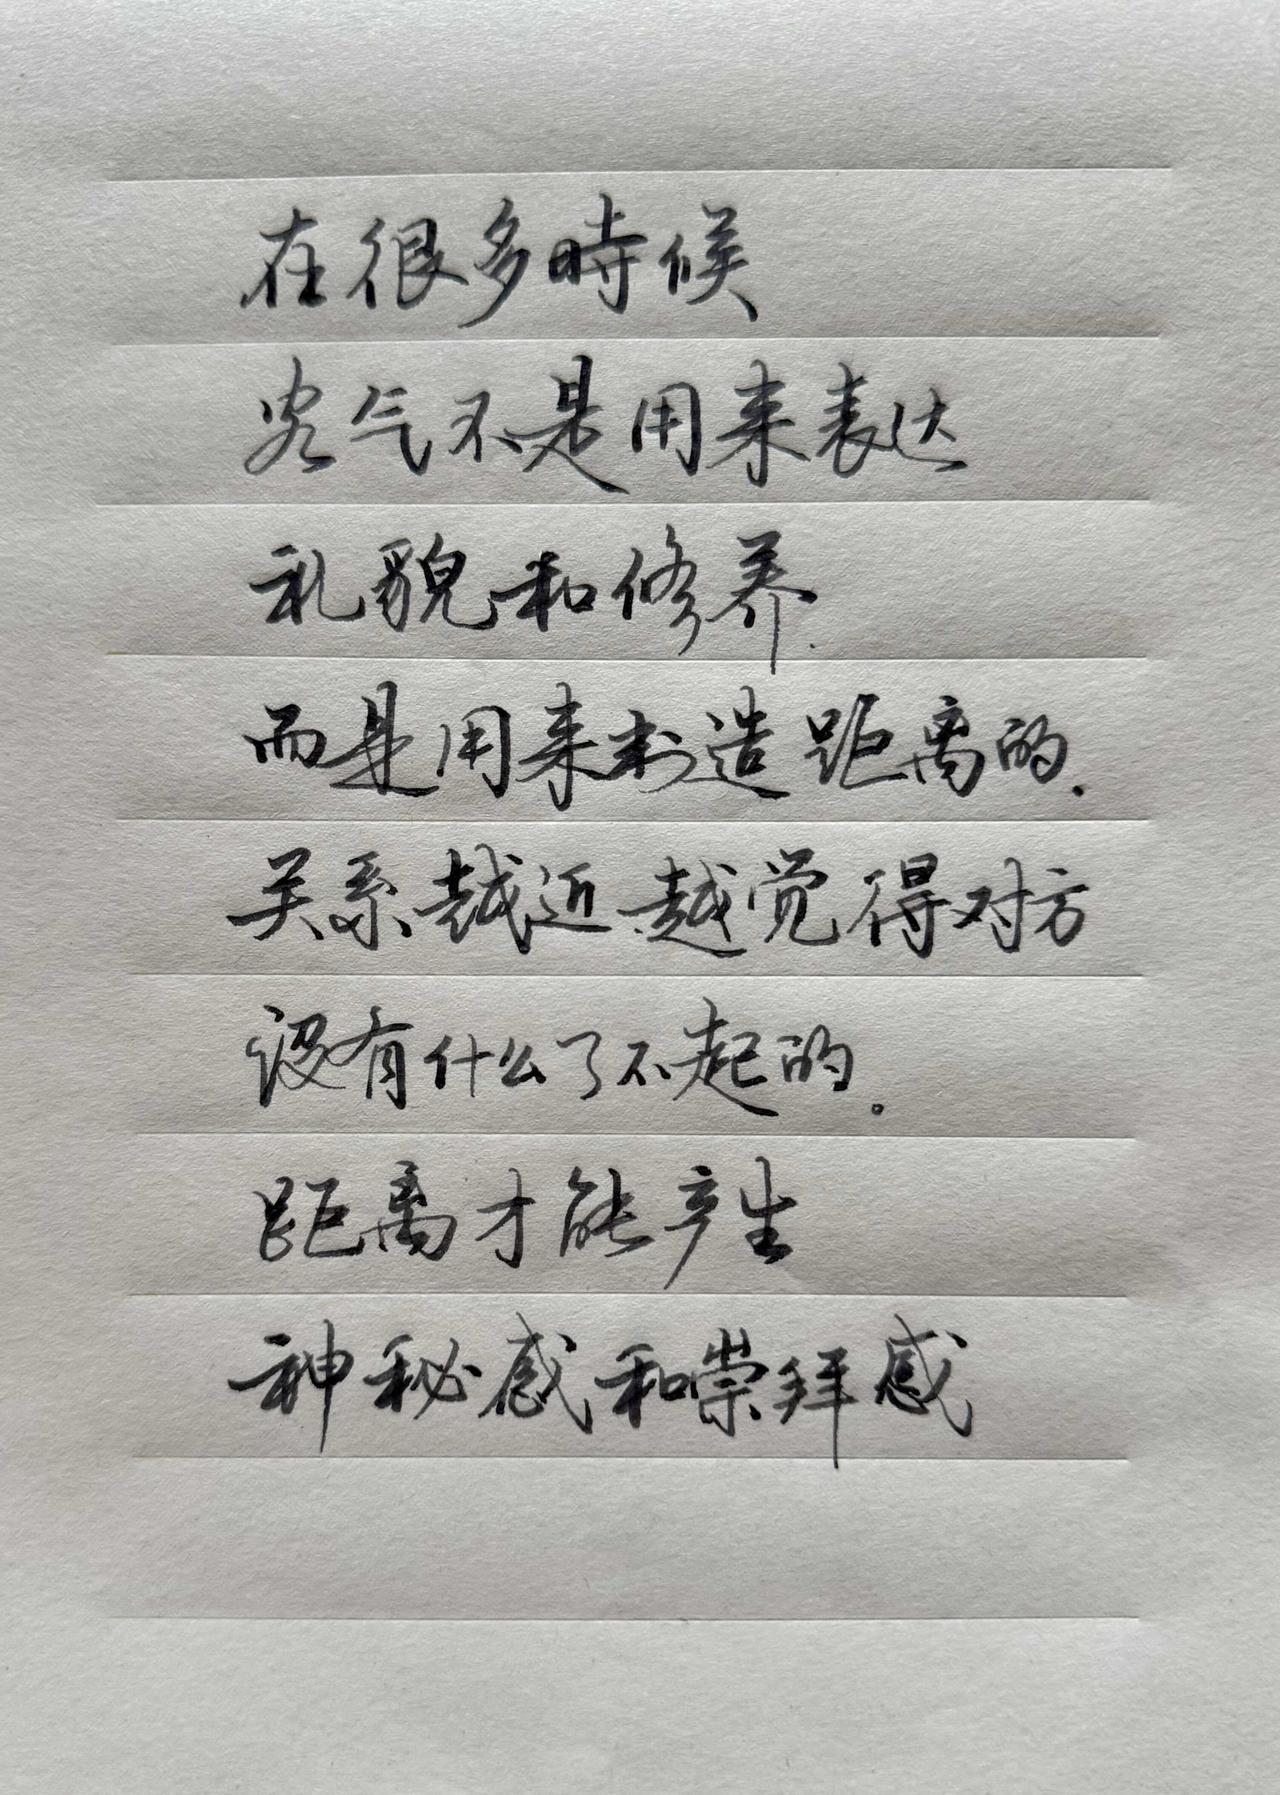 在很多時候
客气不是用来表达
礼貌和修养.
而是用来制造距离的.
关系越近越觉得对方
没有什么了不起的。
距离才能产生
神秘感和崇拜感